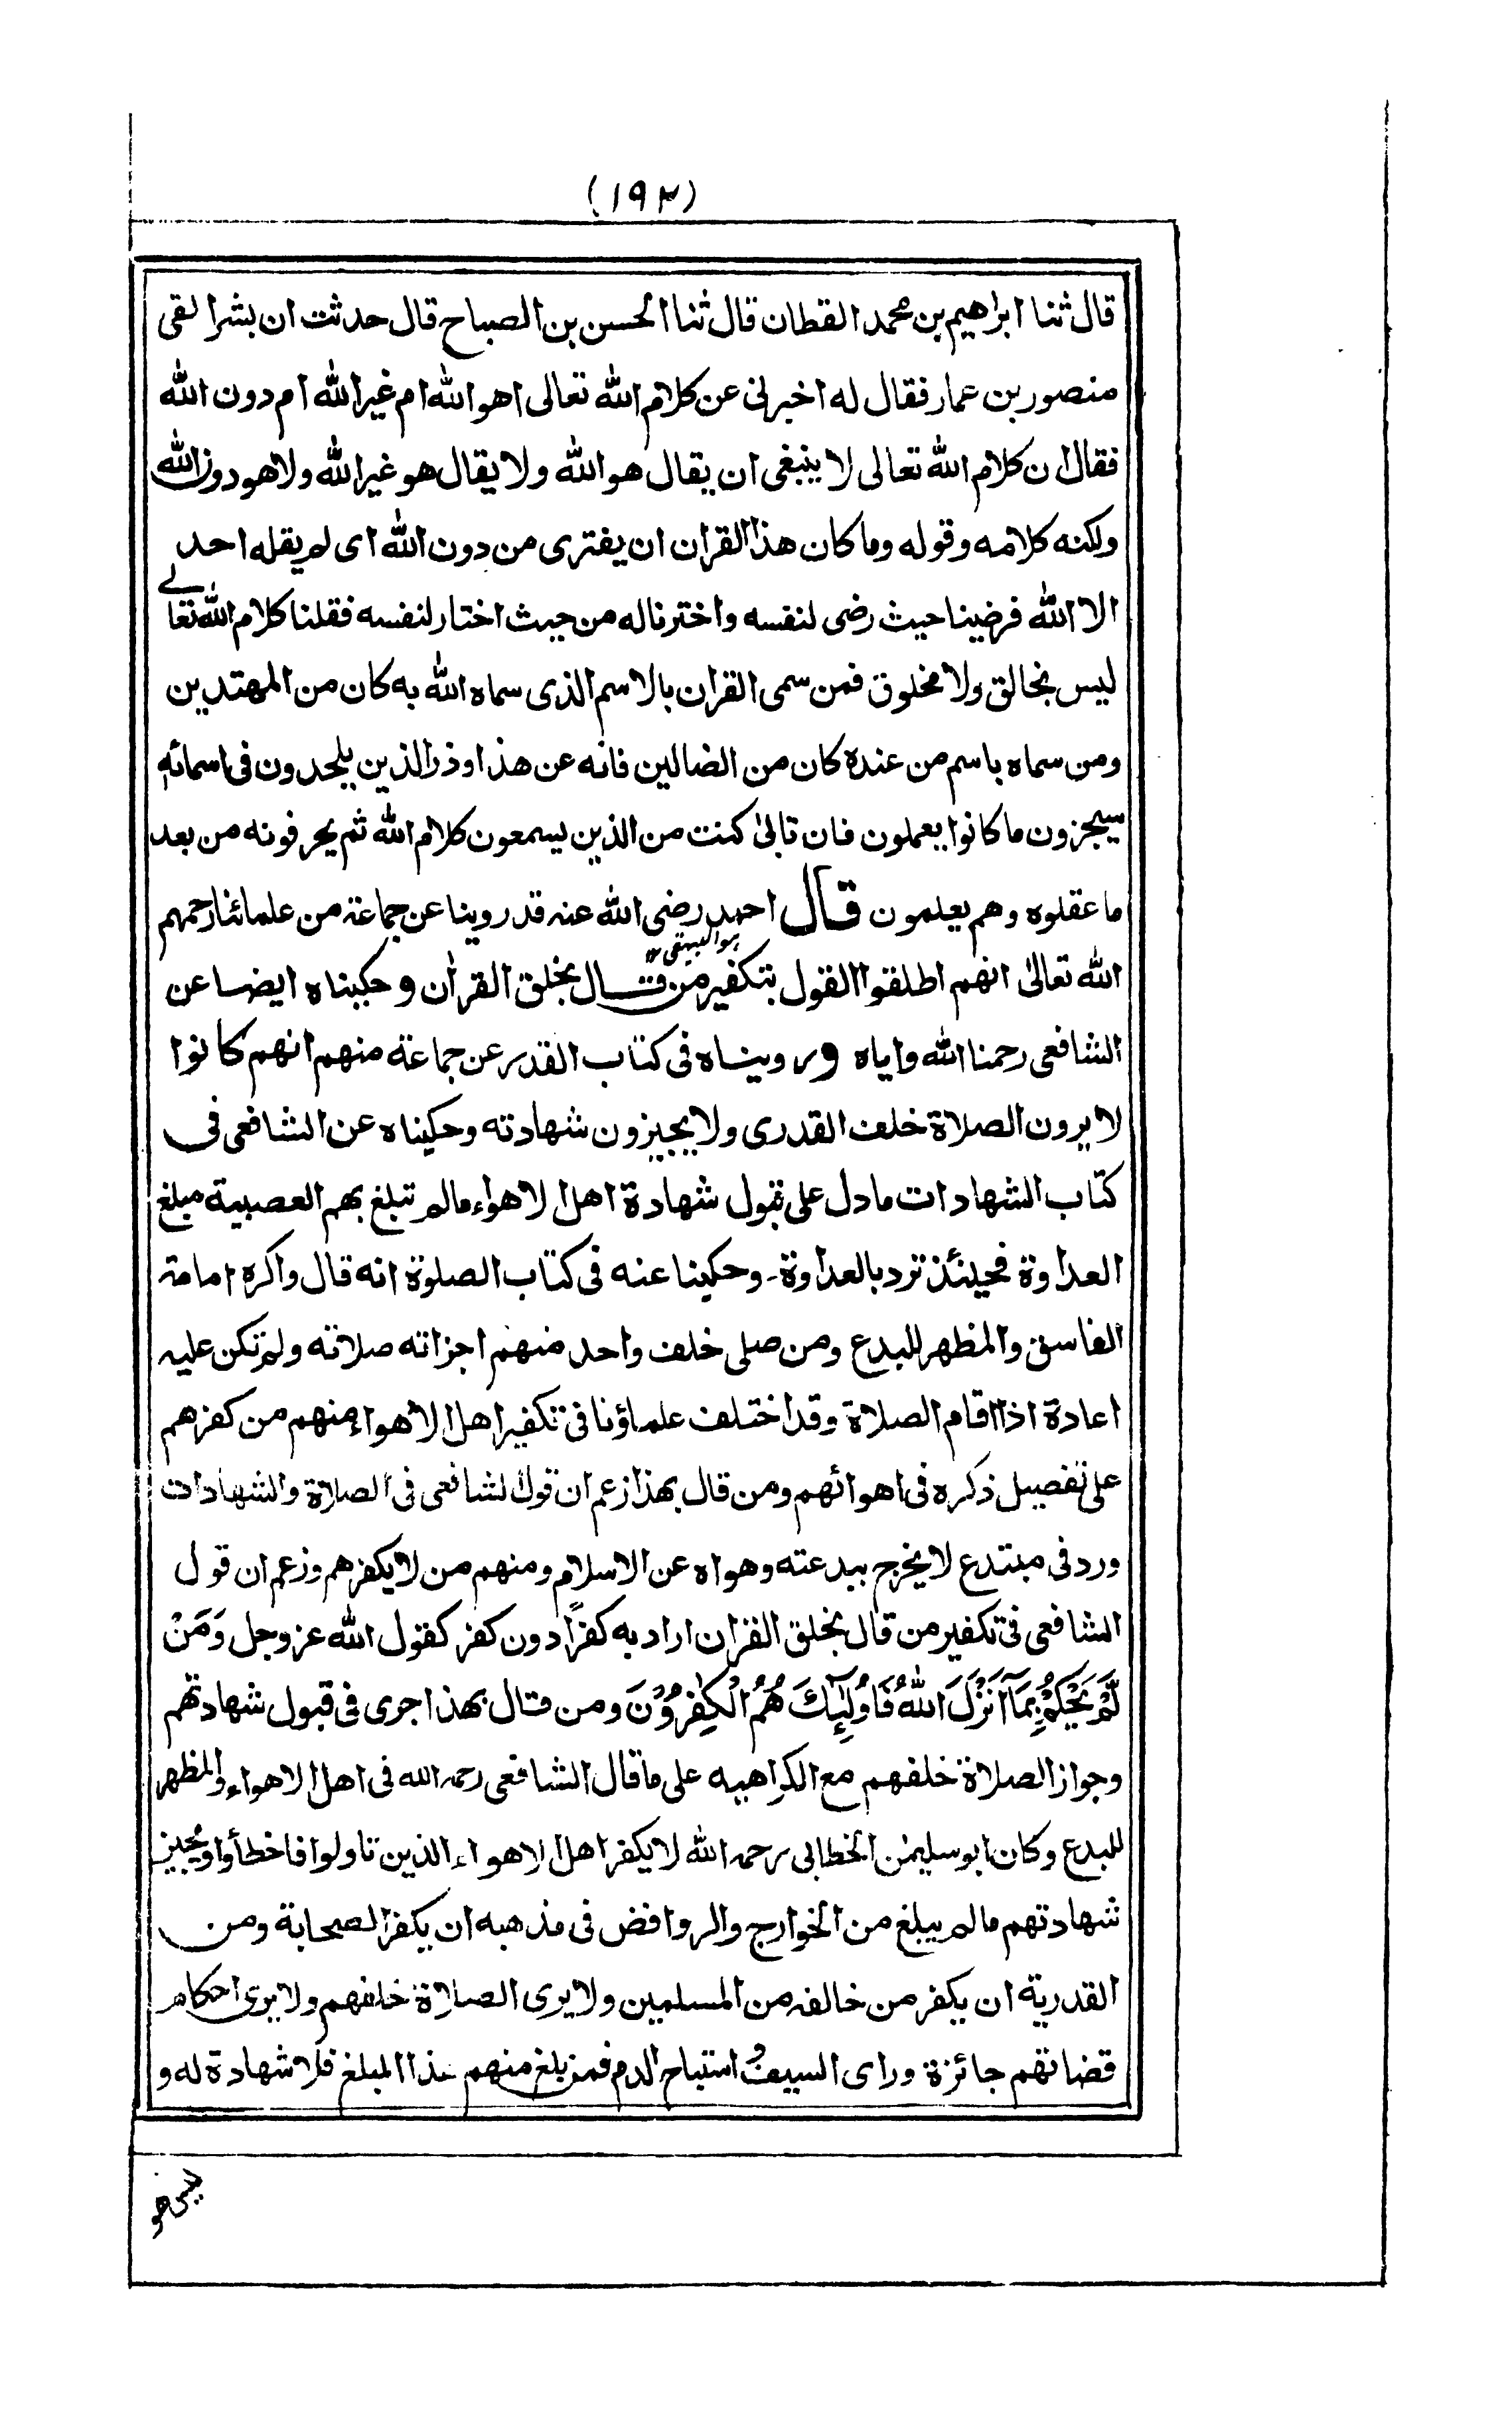 (١٩٢)
قال ثنا ابراهيم بن محمد القطان قال ثنا الحسن بن الصباح قال حدثت ان بشرا لقى
منصور بن عمار فقال له اخبرنى عن كلام الله تعالى اهو الله ام غير الله ام دون الله
فقال ان كلام الله تعالى لا ينبغى ان يقال هو الله ولا يقال هو غير الله ولا هو دون الله
ولكنه كلامه وقوله وما كان هذا القران ان يفترى من دون الله اى لم يقله احد
الا الله فرضينا حيث رضى لنفسه واخترنا له من حيث اختار لنفسه فقلنا كلام الله تعالے
ليس بخالق ولا مخلوق فمن سمى القران بالاسم الذى سماه الله به كان من المهتدين
ومن سماه باسم من عنده كان من الضالين فانه عن هذا وذر الذين يلحدون فى اسمائه
سيجزون ما كانوا يعملون فان تابىٰ كنت من الذين يسمعون كلام الله ثم يحرفونه من بعد
ما عقلوه وهم يعلمون قال احمد رضى الله عنه قد روينا عن جماعة من علمائنا رحمهم
هو البيهقى
الله تعالىٰ انهم اطلقوا القول بتكفير من قال بخلق القران وحكيناه ايضا عن
الشافعى رحمنا الله واياه وروينـاه فى كتاب القدر عن جماعة منهم انهم كانوا
لا يرون الصلاة خلف القدرى ولا يجيزون شهادته وحكيناه عن الشافعى فى
كتاب الشهادات ما دل على قبول شهادة اهل الاهواء مالم تبلغ بهم العصبية مبلغ
العداوة فحينئذ ترد بالعداوة۔ وحكينا عنه فى كتاب الصلوة انه قال واكره امامة
الفاسق والمظهر للبدع ومن صلى خلف واحد منهم اجزاته صلاته ولم تكن عليه
اعادة اذا اقام الصلاة وقد اختلف علماؤنا فى تكفير اهل الاهواء منهم من كفرهم
على تفصيل ذكره فى اهوائهم ومن قال بهذا زعم ان قول الشافعى فى الصلاة والشهادات
ورد فى مبتدع لا يخرج ببدعته وهواه عن الاسلام ومنهم من لا يكفرهم وزعم ان قول
الشافعى فى تكفير من قال بخلق القران اراد به كفرًا دون كفر كقول الله عز وجل وَمَنْ
لَّمْ يَحْكُمْ بِمَآ اَنْزَلَ اللّٰهُ فَاُولٰٓئِكَ هُمُ الْكٰفِرُوْنَ ومن قال بهذا جرى فى قبول شهادتهم
وجواز الصلاة خلفهم مع الكراهيه على ما قال الشافعى رحمه الله فى اهل الاهواء والمظهر
للبدع وكان ابو سليمٰن الخطابى رحمه الله لا يكفر اهل الاهواء الذين تاولوا فاخطأوا ويُجيز
شهادتهم مالم يبلغ من الخوارج والروافض فى مذهبه ان يكفر الصحابة ومن
القدرية ان يكفر من خالفه من المسلمين ولا يرى الصلاة خلفهم ولا يرى احكام
قضاتهم جائزة وراى السيف استباح الدم فمن بلغ منهم هذا المبلغ فلا شهادة له و
ليس هو